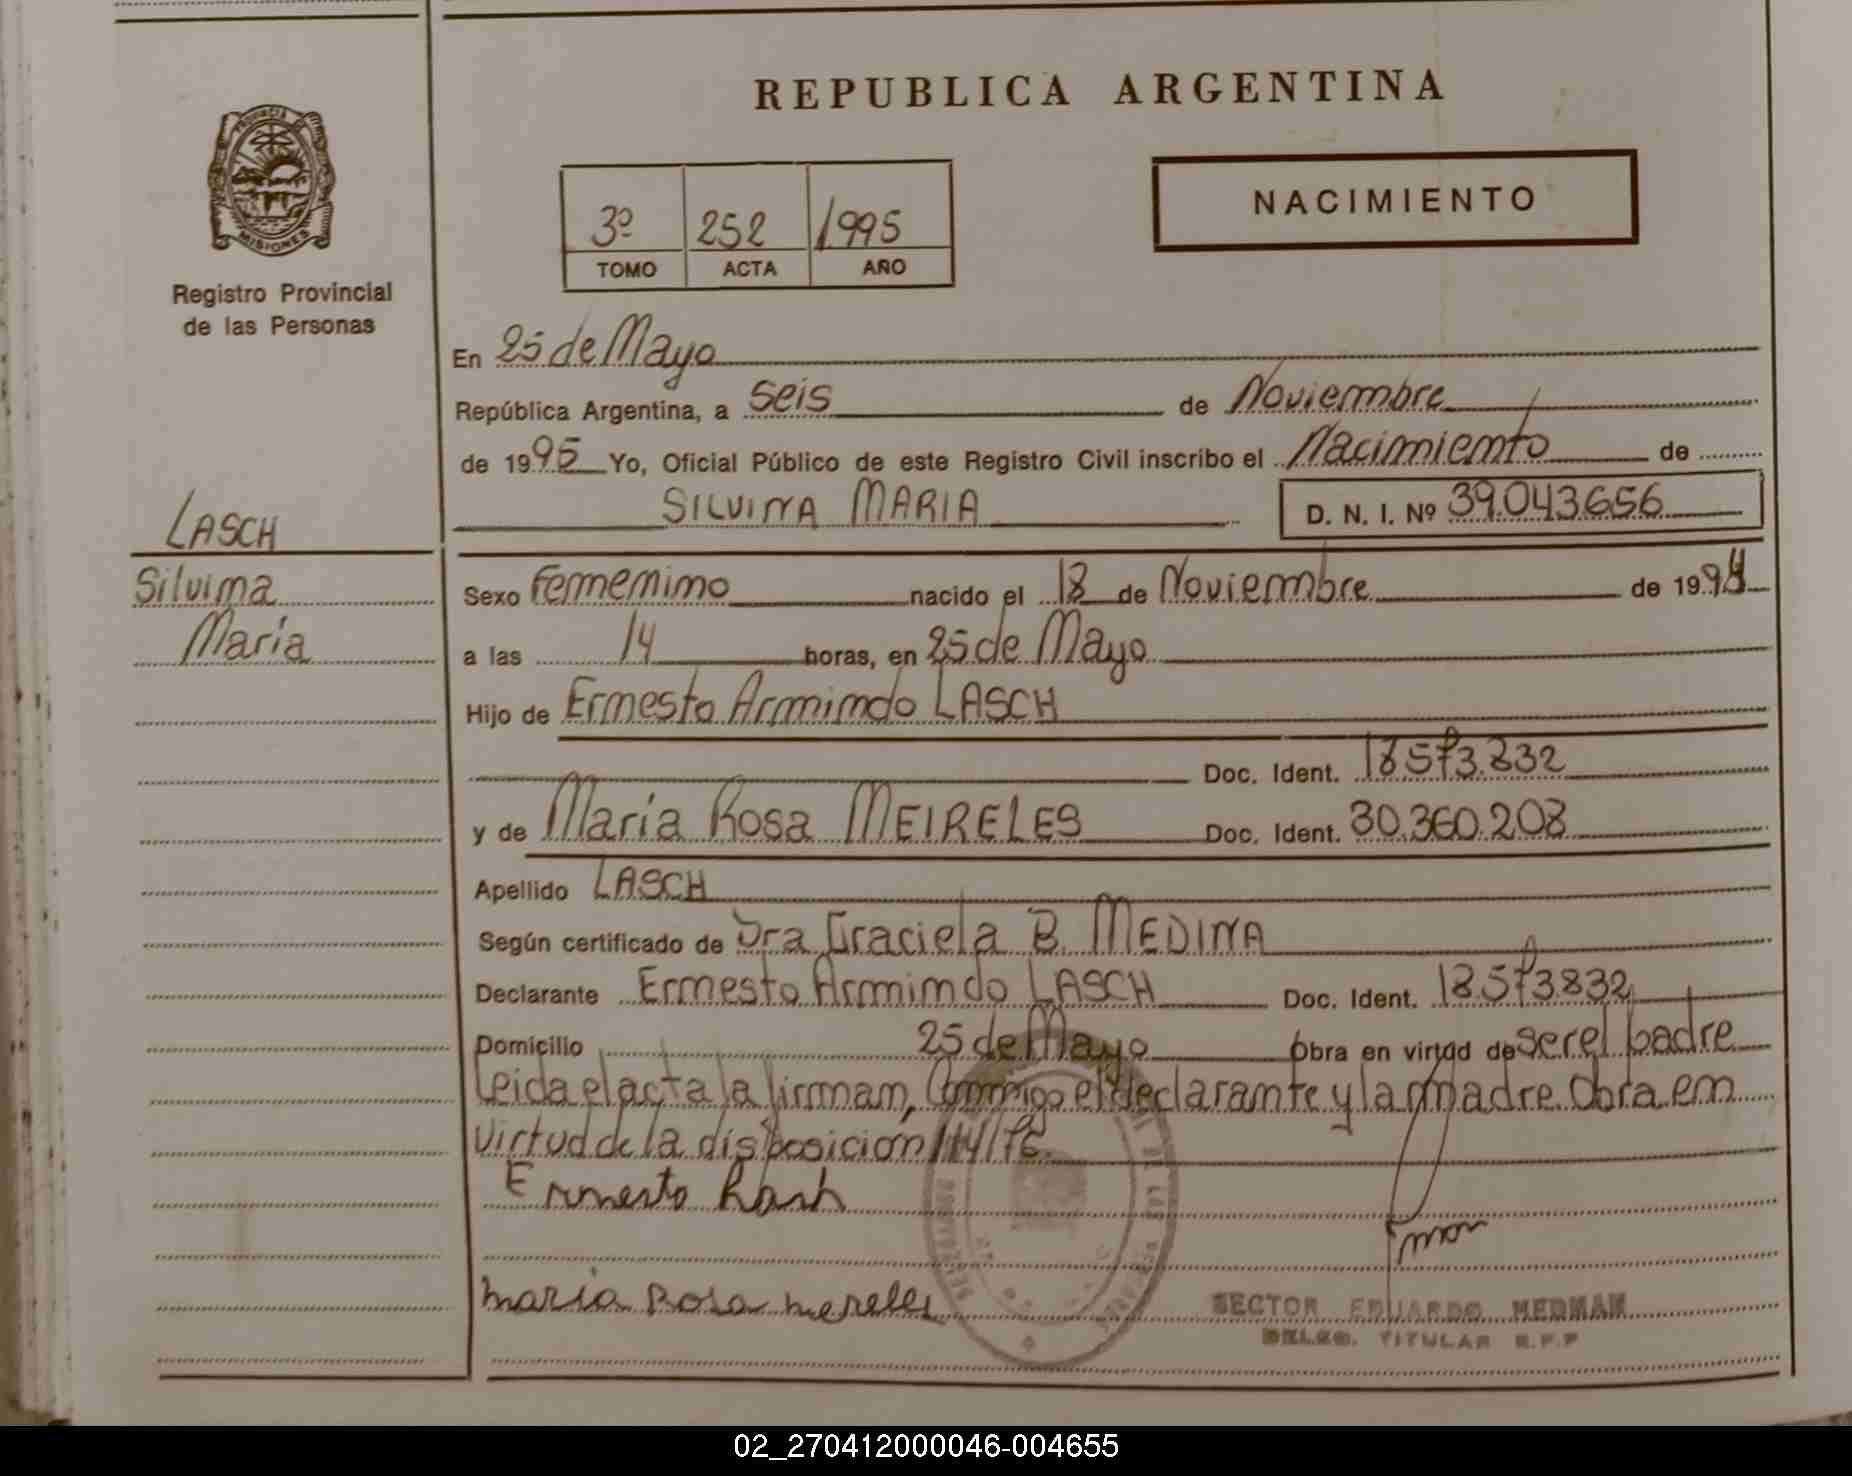 REPUBLICA ARGENTINA
PROVINCIA DE
MISIONES
Registro Provincial
de las Personas
3º 252 1995
TOMO ACTA AÑO
NACIMIENTO
En 25 de Mayo
República Argentina, a seis de Noviembre
de 1995 Yo, Oficial Público de este Registro Civil inscribo el Nacimiento de
SILVINA MARIA D. N. I. Nº 39.043.656
LASCH
Silvina
María
Sexo Femenino nacido el 18 de Noviembre de 1994
a las 14 horas, en 25 de Mayo
Hijo de Ernesto Armindo LASCH
Doc. Ident. 18573.832
y de María Rosa MEIRELES Doc. Ident. 30.360.208
Apellido LASCH
Según certificado de Dra Graciela B. MEDINA
Declarante Ernesto Armindo LASCH Doc. Ident. 18.573832
Domicilio 25 de Mayo Obra en virtud de ser el padre
Leida el acta la firman, Conmigo el declarante y la madre Obra en
virtud de la disposición
Ernesto Lash
maria Rosa mereles
SECTOR EDUARDO
DELEG. TITULAR R.P.P
02_270412000046-004655